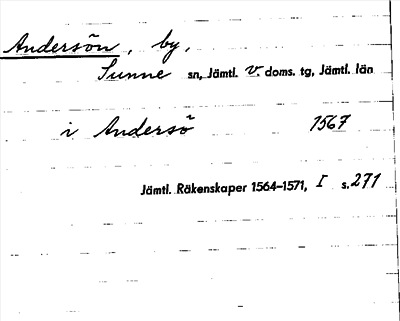 Andersön, by,
Sunne sn, Jämtl. v. doms. tg, Jämtl. län
i Andersö 1567
Jämtl. Räkenskaper 1564–1571, I s. 271